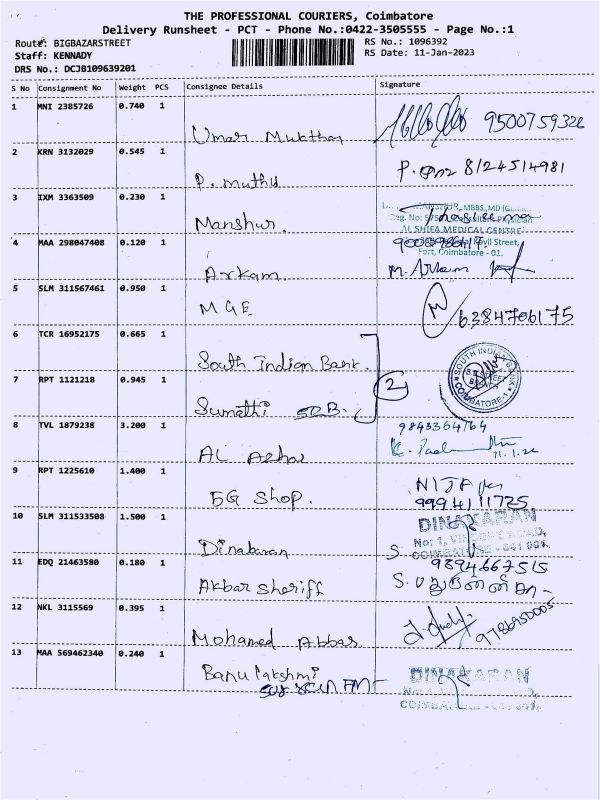 THE PROFESSIONAL COURIERS, Coimbatore
Delivery Runsheet - PCT - Phone No.:0422-3505555 - Page No.:1
Route: BIGBAZARSTREET
RS No.: 1096392
Staff: KENNADY
RS Date: 11-Jan-2023
DRS No.: DCJB109639201
S No Consignment No Weight PCS Consignee Details Signature
1 MNI 2385726 0.740 1 Umar 9500759326
2 KRN 3132029 0.545 1 P. muthu 8124514981
3 IXM 3363509 0.230 1 Manshur.
MBBS.,MD
AL SHIFA MEDICAL CENTRE
Street,
Fort, Coimbatore - 01.
4 MAA 298047408 0.120 1 Arkam M. Arkam
5 SLM 311567461 0.950 1 MGE M 6384706175
6 TCR 16952175 0.665 1 South Indian Bank.
SOUTH INDIAN BANK
COIMBATORE-1
7 RPT 1121218 0.945 1 Sumathi 2
8 TVL 1879238 3.200 1 AL Azhar 9843364764
9 RPT 1225610 1.400 1 5G Shop. 9994111725
10 SLM 311533508 1.500 1 Dinakaran
DINAKARAN
No: 1,
COIMBATORE - 641 001.
11 EDQ 21463580 0.180 1 Akbar Sheriff 9894667515
12 NKL 3115569 0.395 1 Mohamed Abbas 9786950005
13 MAA 569462340 0.240 1 Banu lakshmi
DINAKARAN